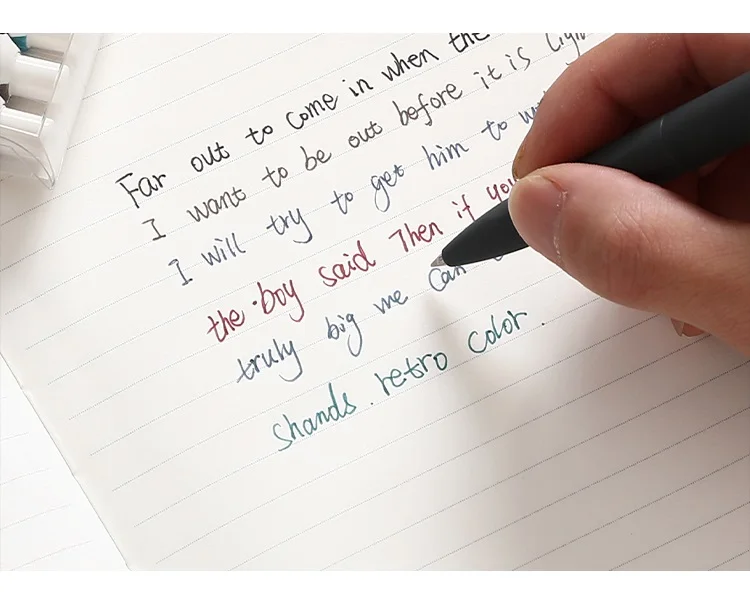 Far out to come in when the
I want to be out before it is
I will try to get him to
the boy said Then if you
truly big me can
Shands. retro color.